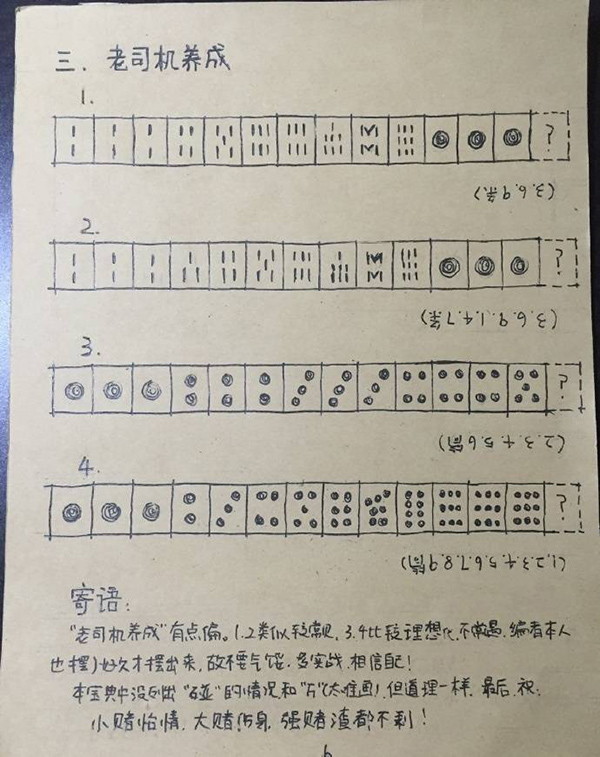 三. 老司机养成
1.
?
(3.6.9条)
2.
?
(3.6.9.1.4.7条)
3.
?
(2.3.4.5.6筒)
4.
?
(1.2.3.4.5.6.7.8.9筒)
寄语:
"老司机养成"有点偏。1.2类似较常见, 3.4比较理想化, 不常遇, 编者本人
也摆了好久才摆出来, 故不要气馁. 多实战. 相信自己!
本宝典中没列出"碰"的情况和"万"(太难画), 但道理一样. 最后, 祝:
小赌怡情, 大赌伤身, 强赌渣都不剩!
6